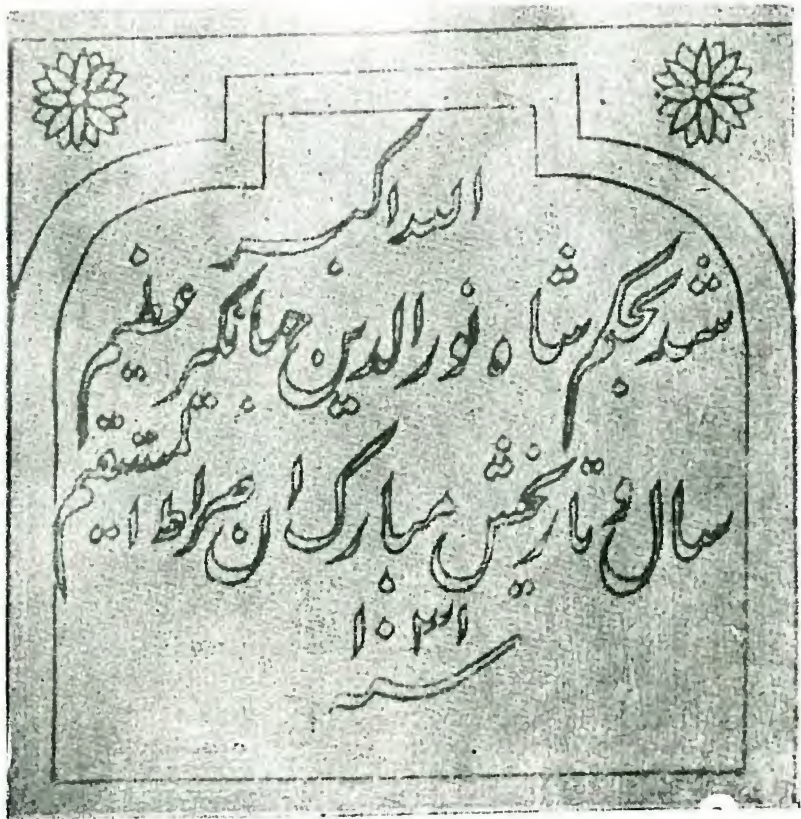 الله اکبر
شد بحکم شاه نورالدین جهانگیر عظیم
سال تاریخش مبارک ان صراط المستقیم
۱۰۳۱